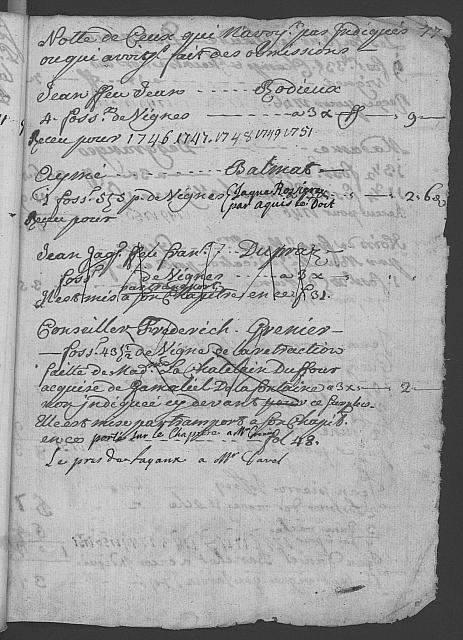 17
Notte de Ceux qui n'avoyt. pas Indiqués
ou qui avoyt. fait des obmissions
Jean ffeu Jean - - - - Rodieux
4 - foss.rs de Vignes - a 3 x ff - 9 -
Receu pour 1746. 1747. 1748 1749 1751
Aymé - - - Balmat -
1 foss.r 575 p. de Vignes Jaque
par aquis le Doit - 2 - 6
Receu pour
Jean Jaq.s ffeu fran.s Dupraz
foss.rs de Vignes - a 3 x
par transport
Il est mis a son Chapitre en ce f 31.
Conseiller Frederich Grenier -
- foss. 43 1/2 de Vigne de la retraction
faitte de Mad.me la Chatelain Duffour
acquise de Gamaliel De la fontaine a 3 x - 2 -
non Indiquée cy devant ce surplus.
Elle est mise par transport a son Chapit.
en ce porté sur le Chappitre a Mr fol 48.
Le pres de Layaux a Mr Cavel